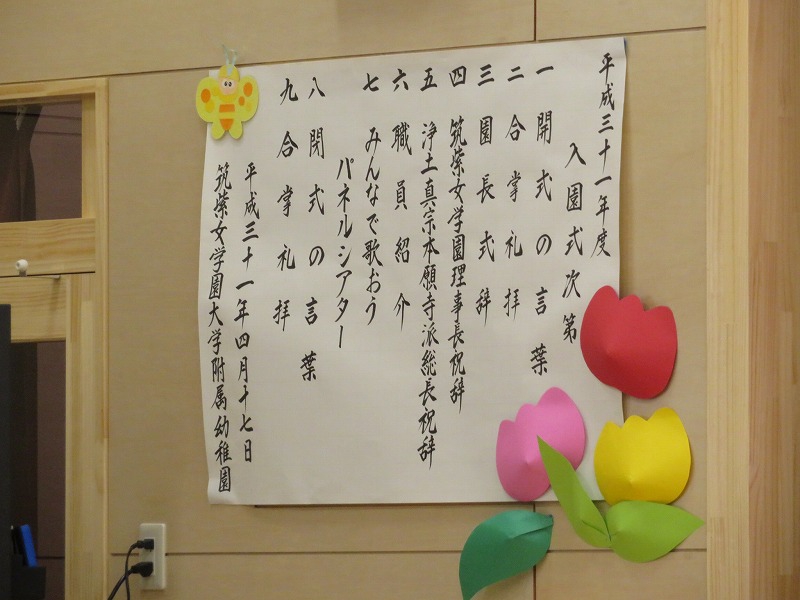 平成三十一年度
入園式次第
一 開式の言葉
二 合掌礼拝
三 園長式辞
四 筑紫女学園理事長祝辞
五 浄土真宗本願寺派総長祝辞
六 職員紹介
七 みんなで歌おう
パネルシアター
八 閉式の言葉
九 合掌礼拝
平成三十一年四月十七日
筑紫女学園大学附属幼稚園